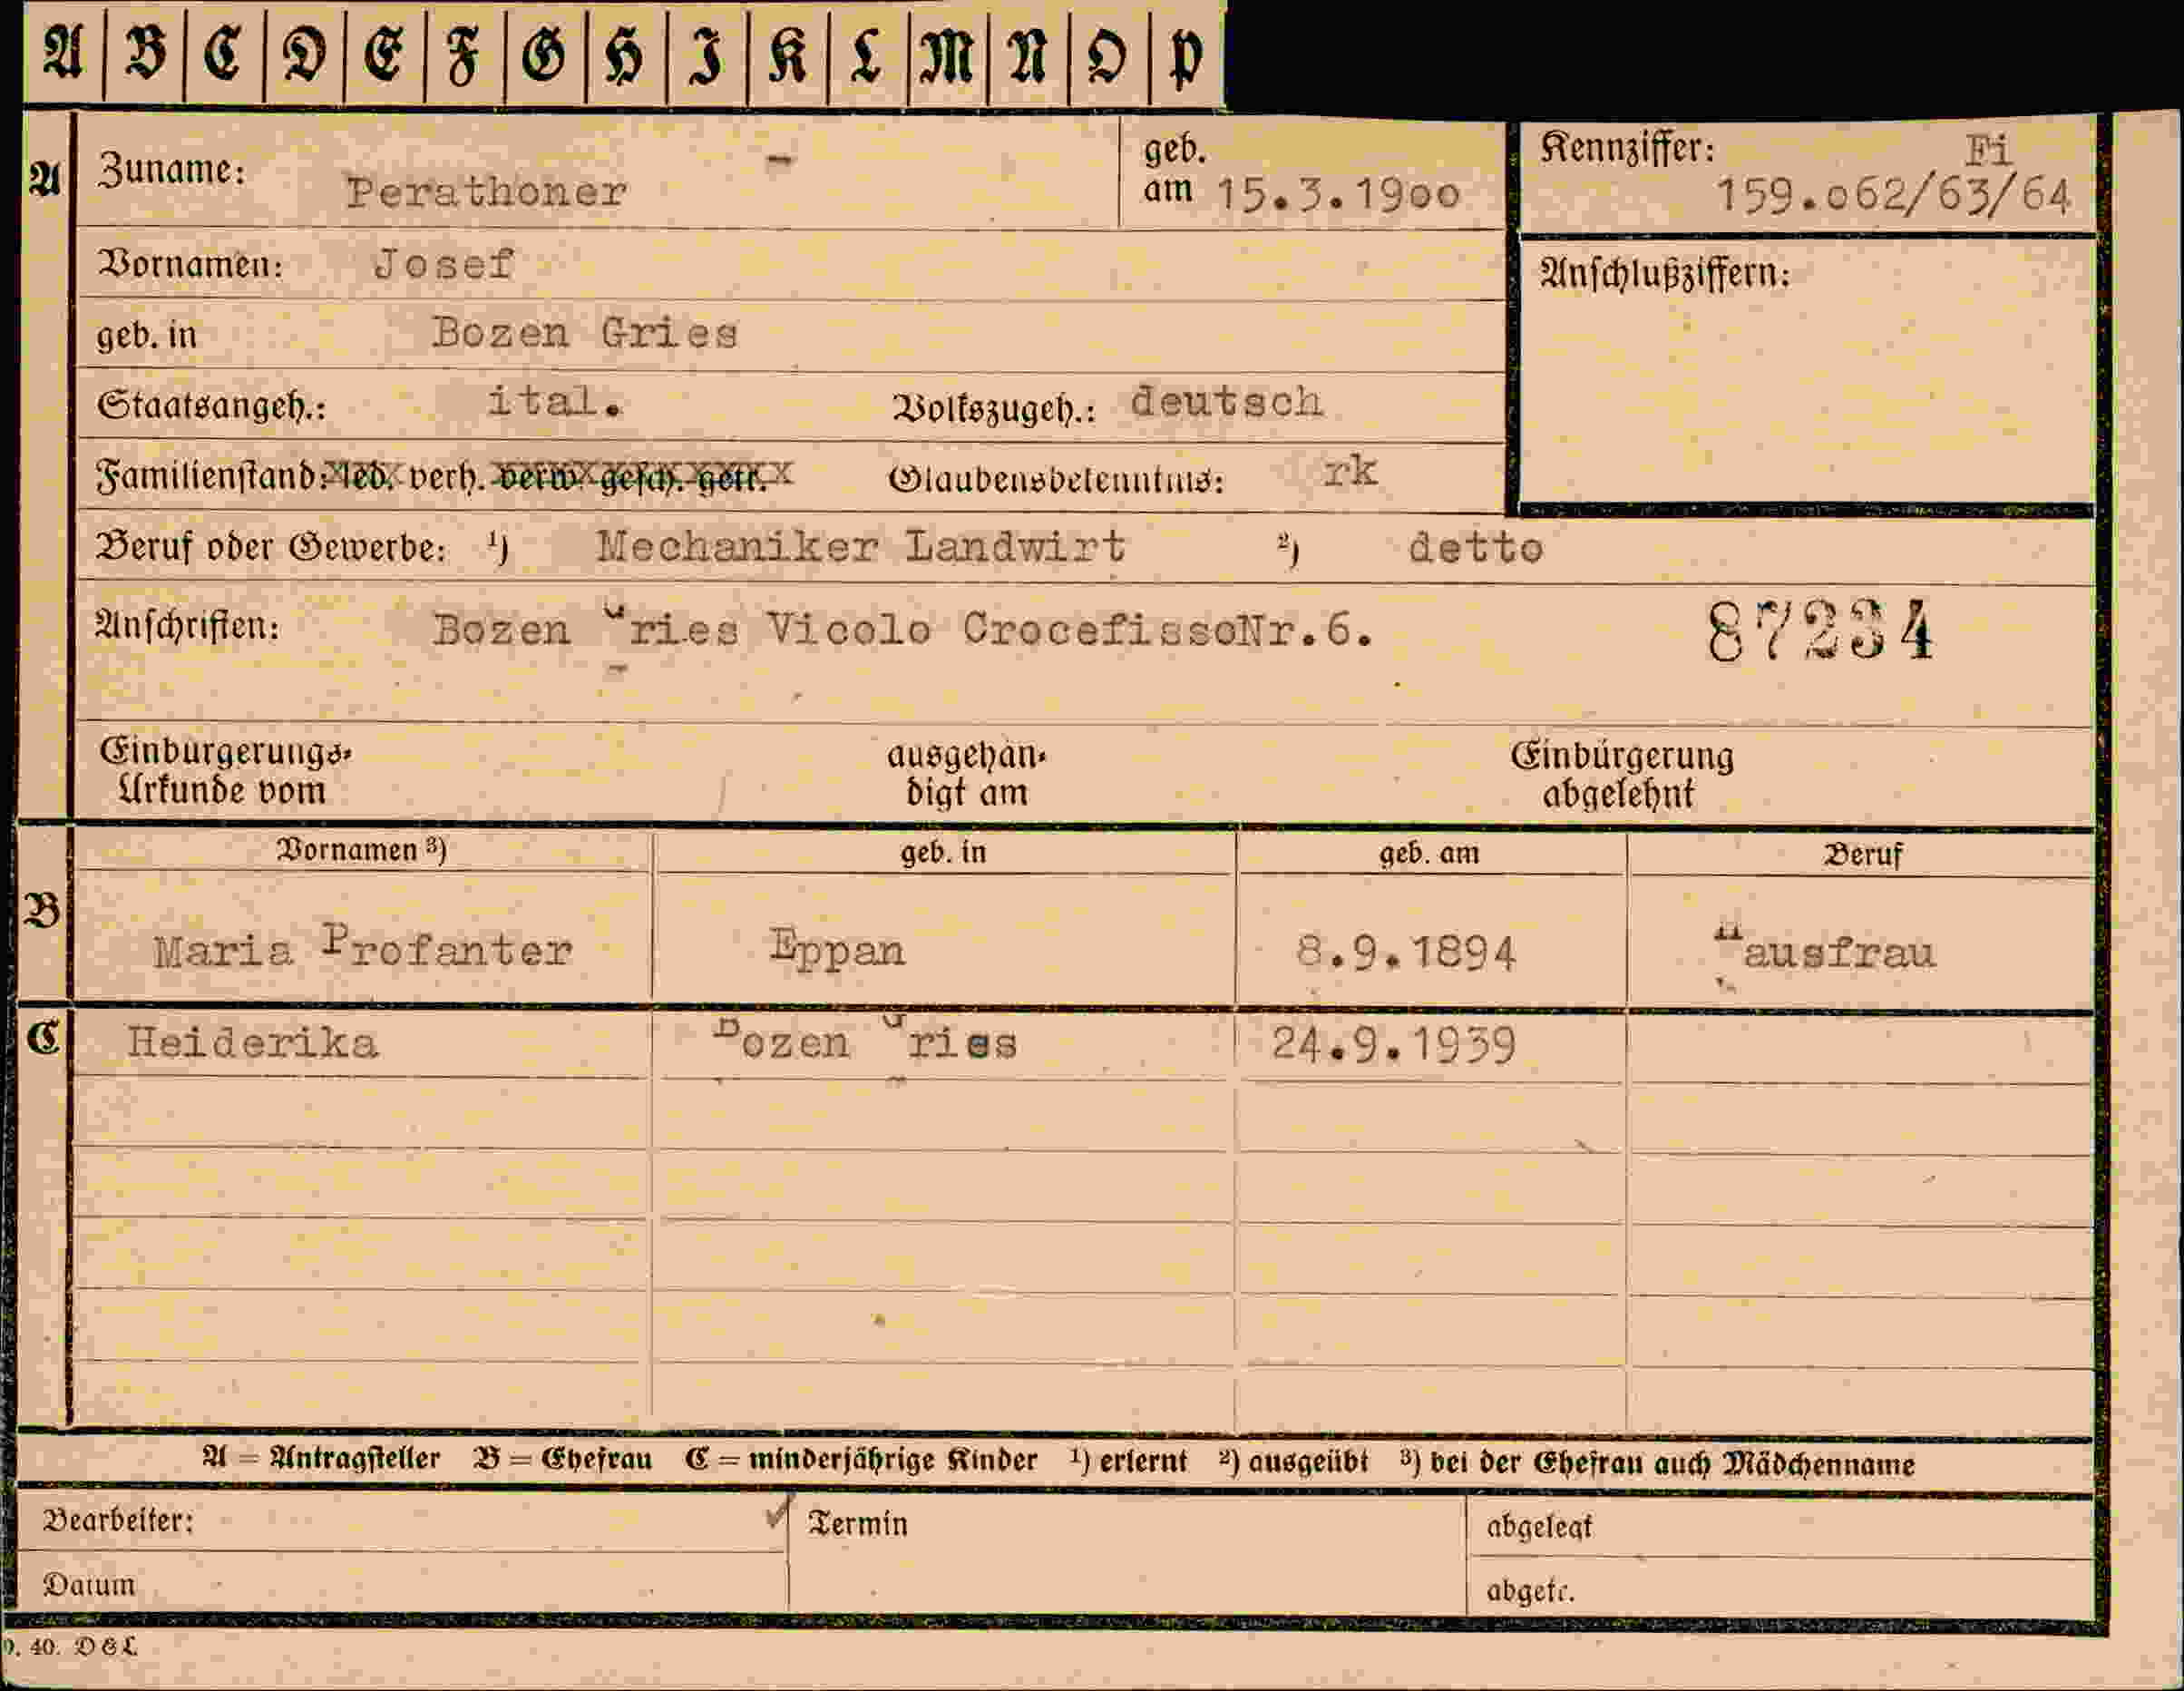 A B C D E F G H I K L M N O P
A Zuname: Perathoner geb. am 15.3.19oo Kennziffer: Fi 159.o62/63/64
Vornamen: Josef Anschlußziffern:
geb. in Bozen Gries
Staatsangeh.: ital. Volkszugeh.: deutsch
Familienstand: led. verh. verw. gesch. getr. Glaubensbekenntnis: rk
Beruf oder Gewerbe: 1) Mechaniker Landwirt 2) detto
Anschriften: Bozen Gries Vicolo CrocefissoNr.6. 87234
Einbürgerungs- ausgehän- Einbürgerung
Urkunde vom digt am abgelehnt
Vornamen 3) geb. in geb. am Beruf
B Maria Profanter Eppan 8.9.1894 Hausfrau
C Heiderika Bozen Gries 24.9.1939
A = Antragsteller B = Ehefrau C = minderjährige Kinder 1) erlernt 2) ausgeübt 3) bei der Ehefrau auch Mädchenname
Bearbeiter: Termin abgelegt
Datum abgetr.
40. DGL